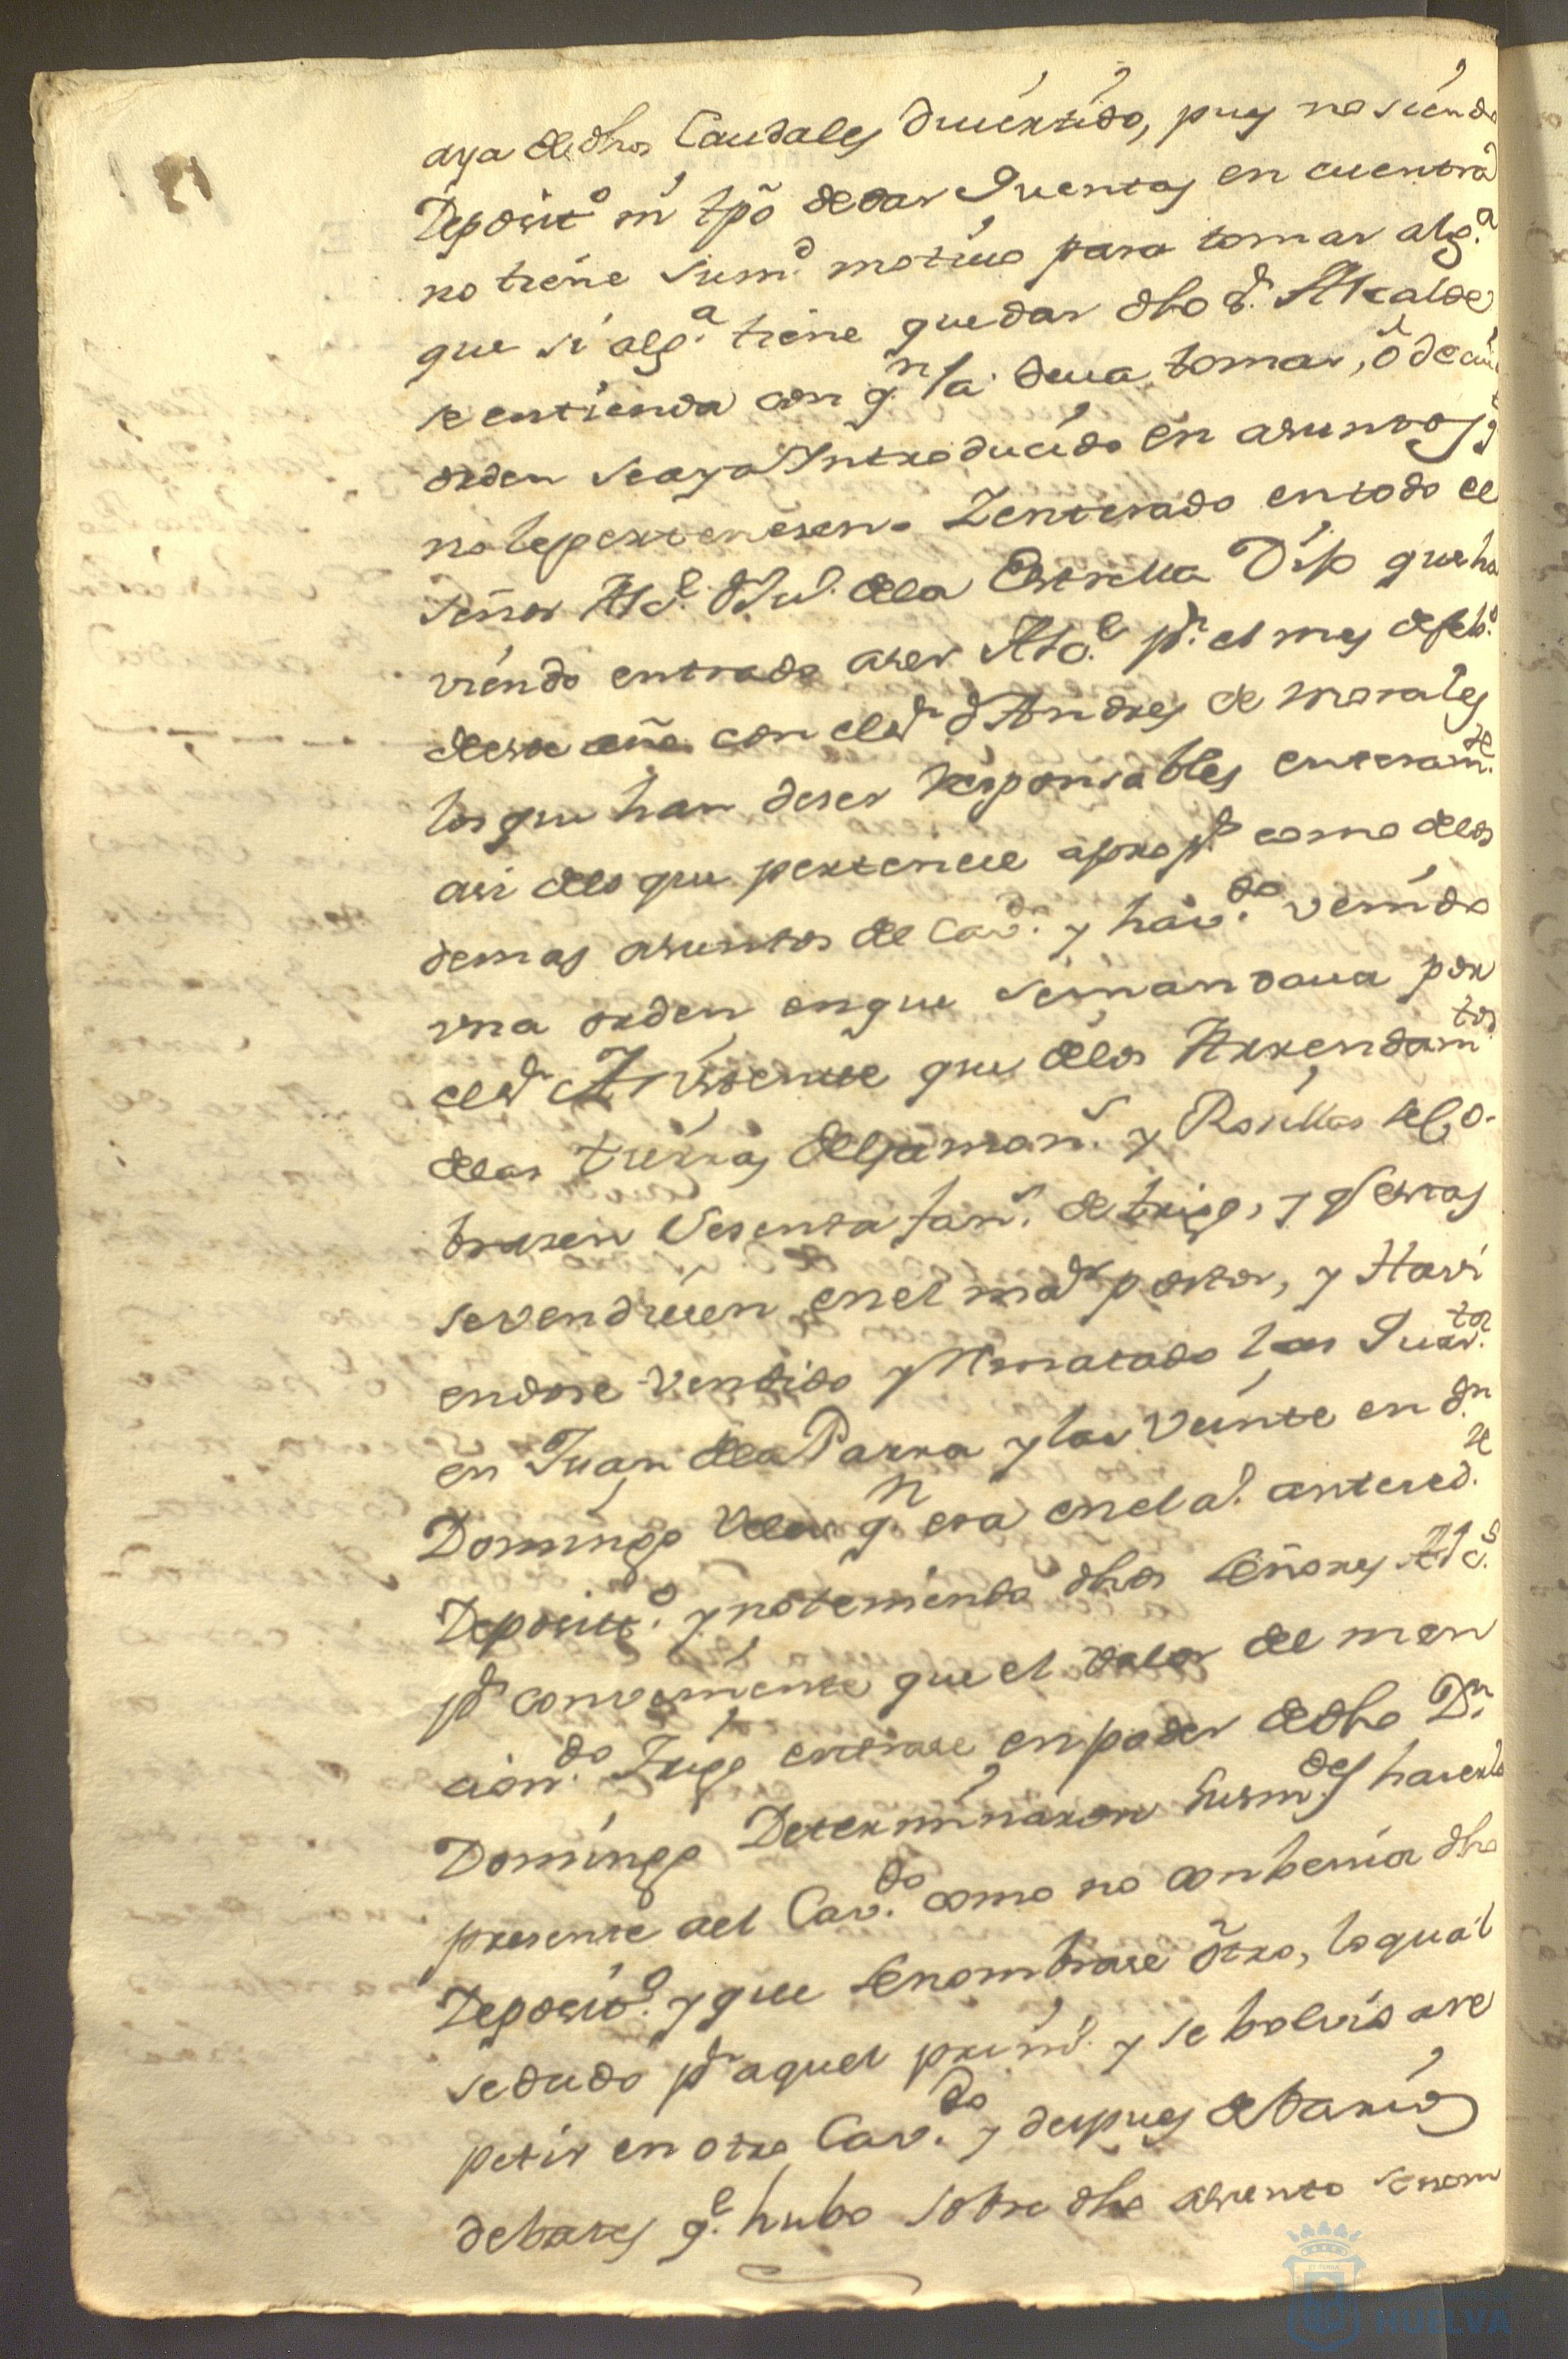 aya de dhos Caudales divertido, pues no siendo
Deposit.o ni tpõ de dar Quentas en cuentra
no tiene sum.d motivo para tomar alg.a
que si alg.a tiene que dar dho S.r Alcalde
se entienda con q.n la deva tomar, ò de cuia
orden se aya Yntroducido en asuntos q.e
no le pertenesen. Zenterado en todo el
Señor Alc.e D Ju.o de la Estrella Dijo que ha
viendo entrado aser Alc.e p.r el mes de feb.o
de este año con el S.r D Andres de Morales
los que han de ser Responsables enteram.te
asi de lo que pertenece a propi.s como de los
demas asuntos de Cav.o y hav.do venido
vna orden en que se mandava por
el S.r Asistente que de los Arrendam.tos
de las tierras de Gamon.s y Rosillas se Co-
brasen Sesenta fan.s de trigo, y q.e estas
se vendiesen en el ma.r postor, y Havi
endose vendido y Rematado las Quar.ta
en Juan de la Parra y las Veinte en d.n
Domingo Velas q.n era en el a.o antesed.te
Deposit.o y no teniendo dhos Señores Alc.s
p.r conveniente que el valor del men
cion.do Trigo entrase en poder de dho D.n
Domingo Determinaron Susm.des haserlo
presente a el Cav.do como no conbenia dho
Deposit.o y que se nombrase otro, lo qual
se dudo p.r aquel prim.o y se bolvió a re
petir en otro Cav.do y despues de barios
debates q.e hubo sobre dho asunto se nom
HUELVA